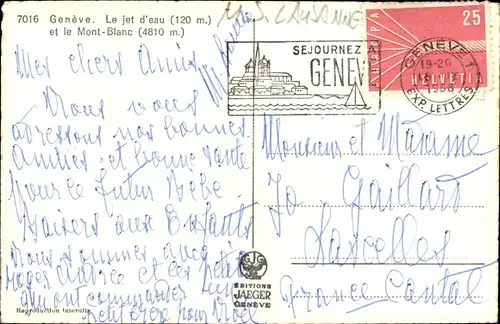 7016 Genève. Le jet d'eau (120 m.)
et le Mont-Blanc (4810 m.)
LAUSANNE
SEJOURNEZ
GENEV
EUROPA
25
HELVETIA
GENÈVE 1
19-20
1958
EXP. LETTRES
Mes chers Amis
Nous vous
adressons nos bonnes
Amitiés et bonne santé
pour le futur Bébé
Baisers aux Enfants
Nous sommes avec
et les petits
ont commandé
petit frère pour Noël
Monsieur et Madame
Jo Gaillard
Lascelles
France Cantal
ÉDITIONS
JAEGER
GENÈVE
Reproduction interdite